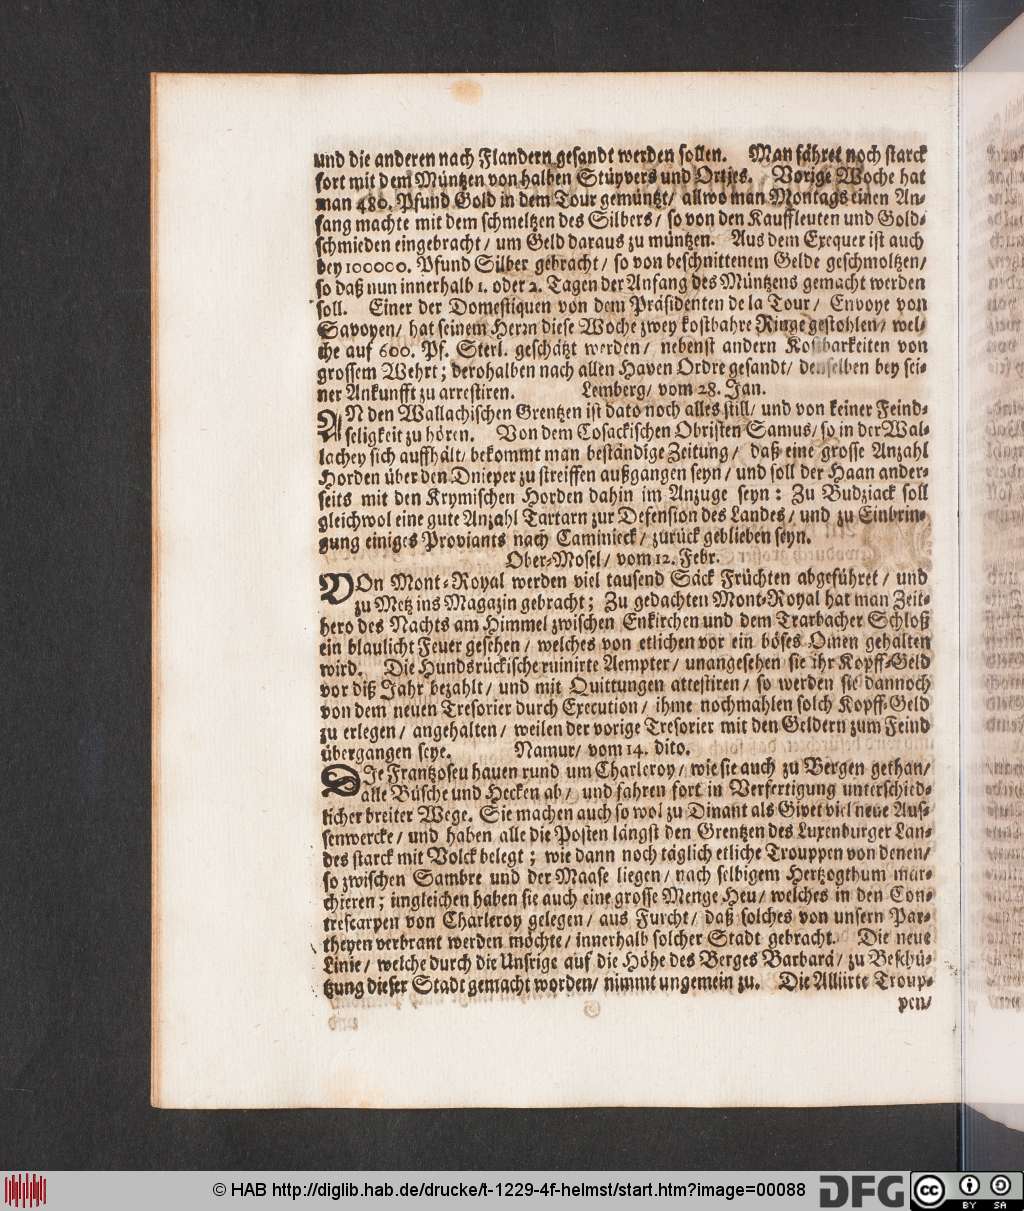 und die anderen nach Flandern gesandt werden sollen. Man fähret noch starck
fort mit dem Müntzen von halben Stüpvers und Ortjes. Vorige Woche hat
man 480. Pfund Gold in dem Tour gemüntzt/ allwo man Montags einen An-
fang machte mit dem schmeltzen des Silbers/ so von den Kauffleuten und Gold-
schmieden eingebracht/ um Geld daraus zu müntzen. Aus dem Exequer ist auch
bey 100000. Pfund Silber gebracht/ so von beschnittenem Gelde geschmoltzen/
so daß nun innerhalb 1. oder 2. Tagen der Anfang des Müntzens gemacht werden
soll. Einer der Domestiquen von dem Präsidenten de la Tour/ Envoye von
Savoyen/ hat seinem Herrn diese Woche zwey kostbahre Ringe gestohlen/ wel-
che auf 600. Pf. Sterl. geschätzt werden/ nebenst andern Kostbarkeiten von
grossem Wehrt; derohalben nach allen Haven Ordre gesandt/ denselben bey sei-
ner Ankunfft zu arrestiren. Lemberg/ vom 28. Jan.
AN den Wallachischen Grentzen ist dato noch alles still/ und von keiner Feind-
seligkeit zu hören. Von dem Cosackischen Obristen Samus/ so in der Wal-
lachey sich auffhält/ bekommt man beständige Zeitung/ daß eine grosse Anzahl
Horden über den Dnieper zu streiffen außgangen seyn/ und soll der Haan ander-
seits mit den Krymischen Horden dahin im Anzuge seyn: Zu Budziack soll
gleichwol eine gute Anzahl Tartarn zur Defension des Landes/ und zu Einbrin-
gung einiges Proviants nach Caminieck/ zurück geblieben seyn.
Ober-Mosel/ vom 12. Febr.
VOn Mont-Royal werden viel tausend Säck Früchten abgeführet/ und
zu Metz ins Magazin gebracht; Zu gedachten Mont-Royal hat man Zeit-
hero des Nachts am Himmel zwischen Enkirchen und dem Trarbacher Schloß
ein blaulicht Feuer gesehen/ welches von etlichen vor ein böses Omen gehalten
wird. Die Hundsrückische ruinirte Aempter/ unangesehen sie ihr Kopff-Geld
vor diß Jahr bezahlt/ und mit Quittungen attestiren/ so werden sie dannoch
von dem neuen Tresorier durch Execution/ ihme nochmahlen solch Kopff-Geld
zu erlegen/ angehalten/ weilen der vorige Tresorier mit den Geldern zum Feind
übergangen seye. Namur/ vom 14. dito.
DIe Frantzosen hauen rund um Charleroy/ wie sie auch zu Bergen gethan/
alle Büsche und Hecken ab/ und fahren fort in Verfertigung unterschied-
licher breiter Wege. Sie machen auch so wol zu Dinant als Givet viel neue Aus-
senwercke/ und haben alle die Posten längst den Grentzen des Luxenburger Lan-
des starck mit Volck belegt; wie dann noch täglich etliche Trouppen von denen/
so zwischen Sambre und der Maase liegen/ nach selbigem Hertzogthum mar-
chieren; imgleichen haben sie auch eine grosse Menge Heu/ welches in den Con-
trescarpen von Charleroy gelegen/ aus Furcht/ daß solches von unsern Par-
theyen verbrant werden möchte/ innerhalb solcher Stadt gebracht. Die neue
Linie/ welche durch die Unsrige auf die Höhe des Berges Barbara/ zu Beschü-
tzung dieser Stadt gemacht worden/ nimmt ungemein zu. Die Alliirte Troup-
pen/
© HAB http://diglib.hab.de/drucke/t-1229-4f-helmst/start.htm?image=00088
DFG
cc BY SA